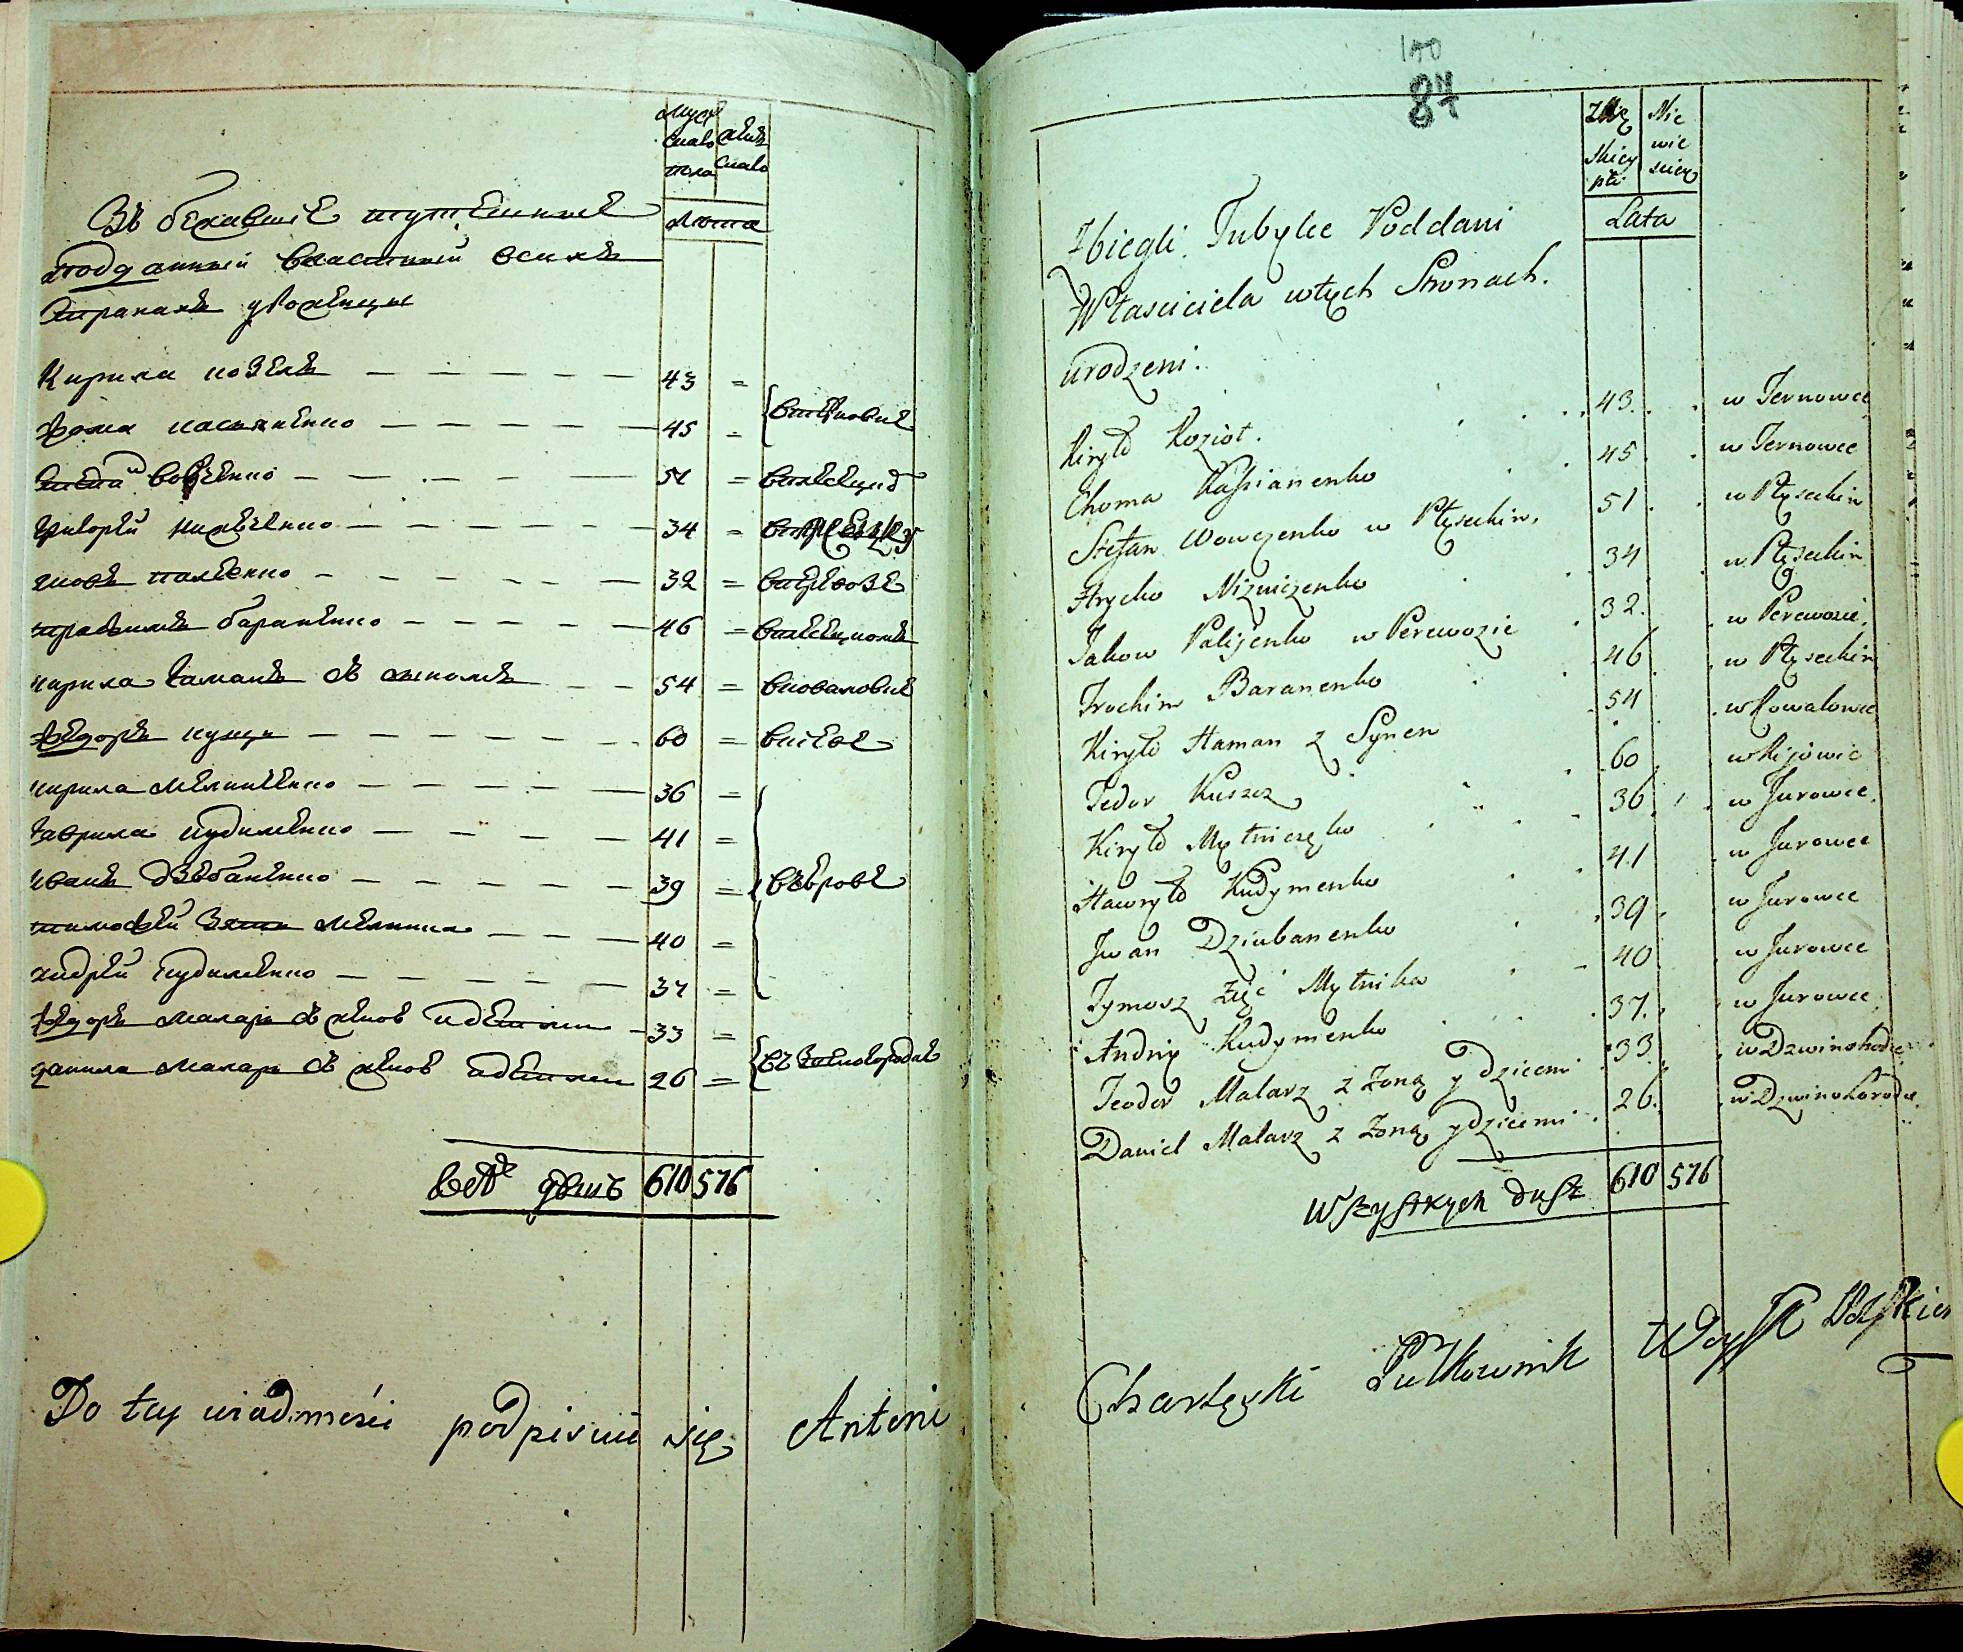 Муск
скаго
пола
женск
скаго
Лѣта
Збѣжавшіе тутешніе
подданный власный всихъ
сторонахъ урожденцы
Кирила козелъ — — — — — — 43 =
Хома касяненко — — — — — — 45 = втерновце
Степа вовченко — — — — — 51 =
Григорей низвѣченко — — — — — — 34 =
яковъ палѣенко — — — — — 32 = вперевозе
трофимъ бараненко — — — — — 46 =
кирила гаманъ съ сыномъ — — 54 = вковаловце
Федоръ кущъ — — — — — — 60 = вкіеве
кирила мелниченко — — — — — — 36 =
гаврила кудименко — — — — — 41 =
иванъ дзюбаненко — — — — — — 39 = въюровце
тимофей зять мелника — — — 40 =
андрей кудименко — — — — — — 37 =
Федоръ маляръ съ женою и детьми — 33 =
данила маляръ съ женою и детьми 26 = въ звиногородке
всѣхъ душъ 610 576
Do tey wiadomości podpisuie się Antoni
87
Zwię
Skiey
płci
Nie
wie
sciey
Lata
Zbiegli Tubylce Poddani
Własciciela wtych Stronach.
urodzeni.
Kiryło Kozioł. 43. w Ternowce
Choma Kassianenko 45 w Ternowce
Stefan Wowczenko w Ptyseckin. 51 w Ptyseckin
Hrycko Nizwiczenko 34 w Ptyseckin
Jakow Palijenko w Perewozie 32. w Perewozie.
Trochim Baranenko 46 w Ptyseckin
Kiryło Haman z Synem 54 w Kowalowce
Fedor Kuszcz 60 w Kijowie
Kiryło Mytniczęko 36 w Jurowce.
Hawryło Kudymenko 41 w Jurowce
Jwan Dziubanenko 39 w Jurowce
Tymosz Zięć Mytnika 40 w Jurowce
Andriy Kudymenko 37. w Jurowce
Teodor Malarz z Zoną y dziecmi 33 w Dzwinohrodce
Daniel Malarz z Zoną y dziecmi 26. w Dzwinohorodce
Wszystkych dusz 610 576
Charlęski Pułkownik Woysk Polskich